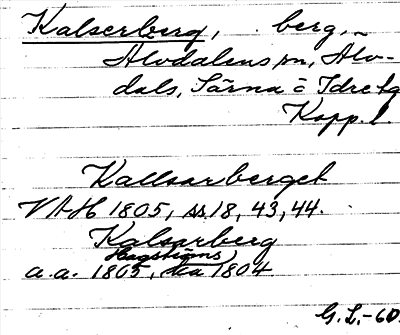 Kalserberg, berg,
Älvdalens sn, Älv-
dals, Särna o Idre tg
Kopp. l.
Kallsarberget
VAH 1805, ss. 18, 43, 44.
Kalsarberg
Hagströms
a.a. 1805, ka 1804
G. L. -60.